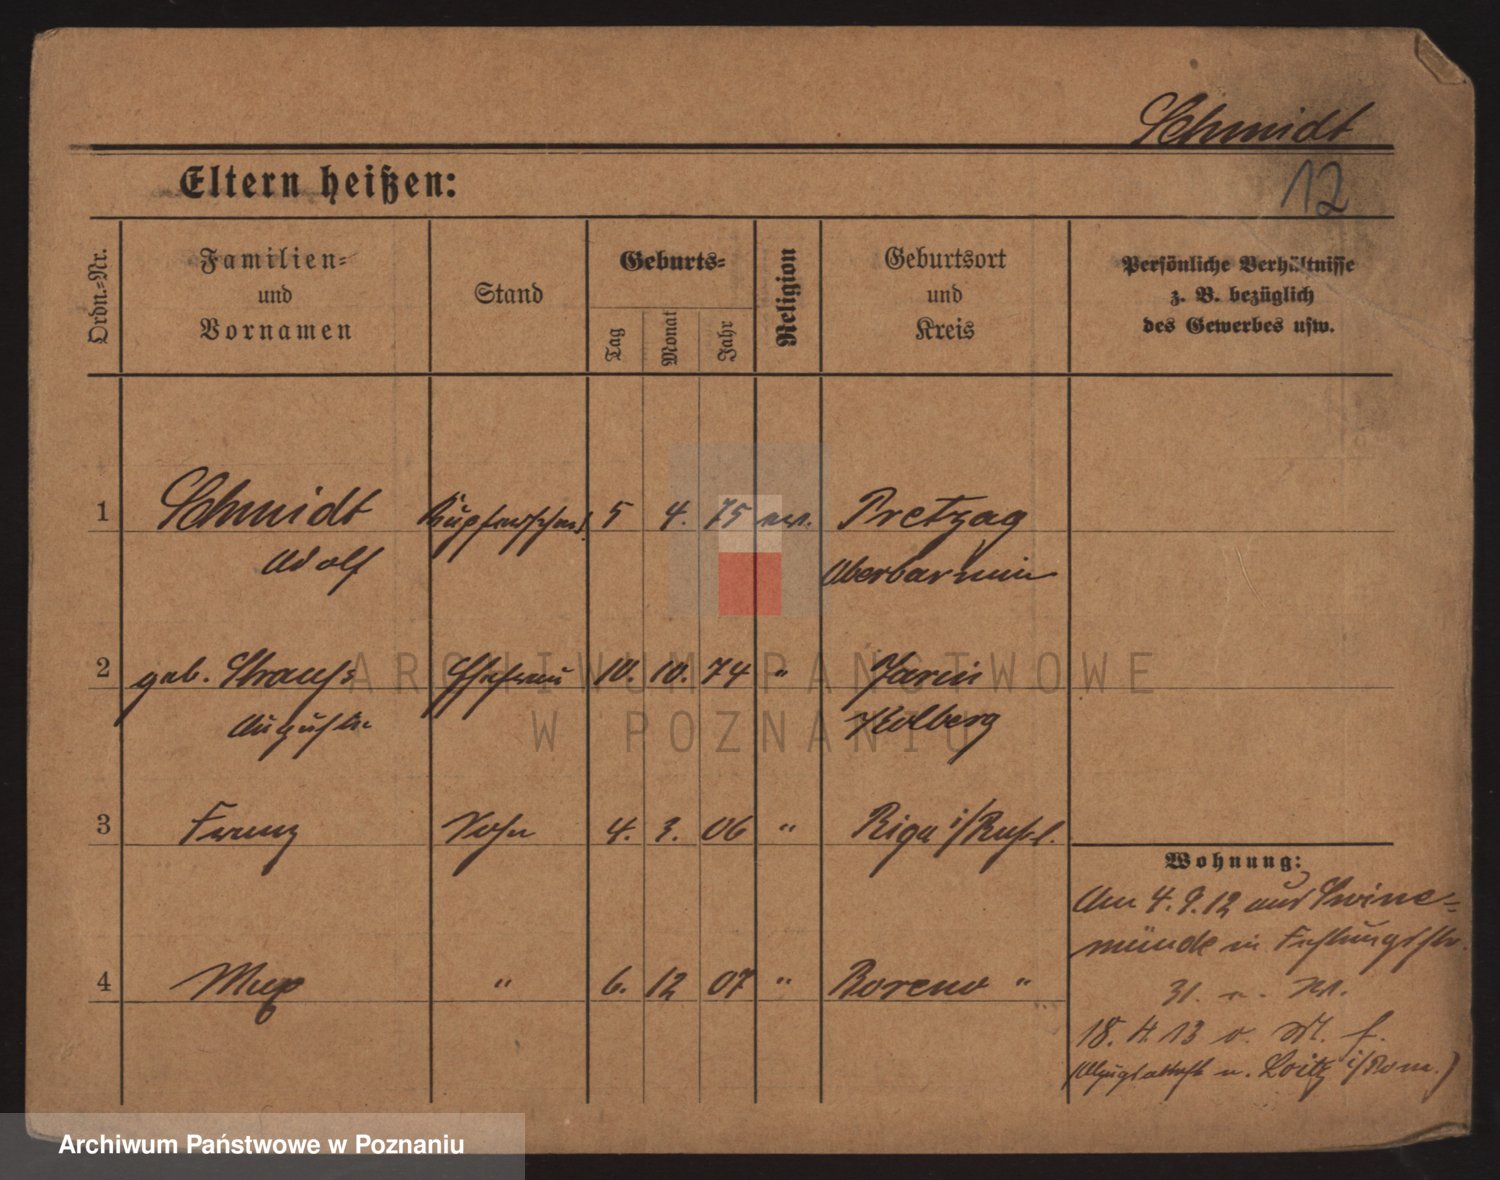 Schmidt
12
Eltern heißen:
Ordn.-Nr.
Familien- und Vornamen
Stand
Geburts-
Tag
Monat
Jahr
Religion
Geburtsort und Kreis
Persönliche Verhältnisse
z. B. bezüglich
des Gewerbes usw.
1 Schmidt 5 4. 75 ev. Pretzag
Adolf Oberbarnim
2 geb. Strauß Ehefrau 10. 10. 74 " Jarin
Auguste Kolberg
3 Franz Sohn 4. 3. 06 " Riga i/Rußl.
Wohnung:
Am 4. 9. 12 aus Swine-
münde in
4 Max " 6. 12 07 " "
31.
18. 4. 13
Loitz i/Pom.)
ARCHIWUM PAŃSTWOWE
W POZNANIU
Archiwum Państwowe w Poznaniu